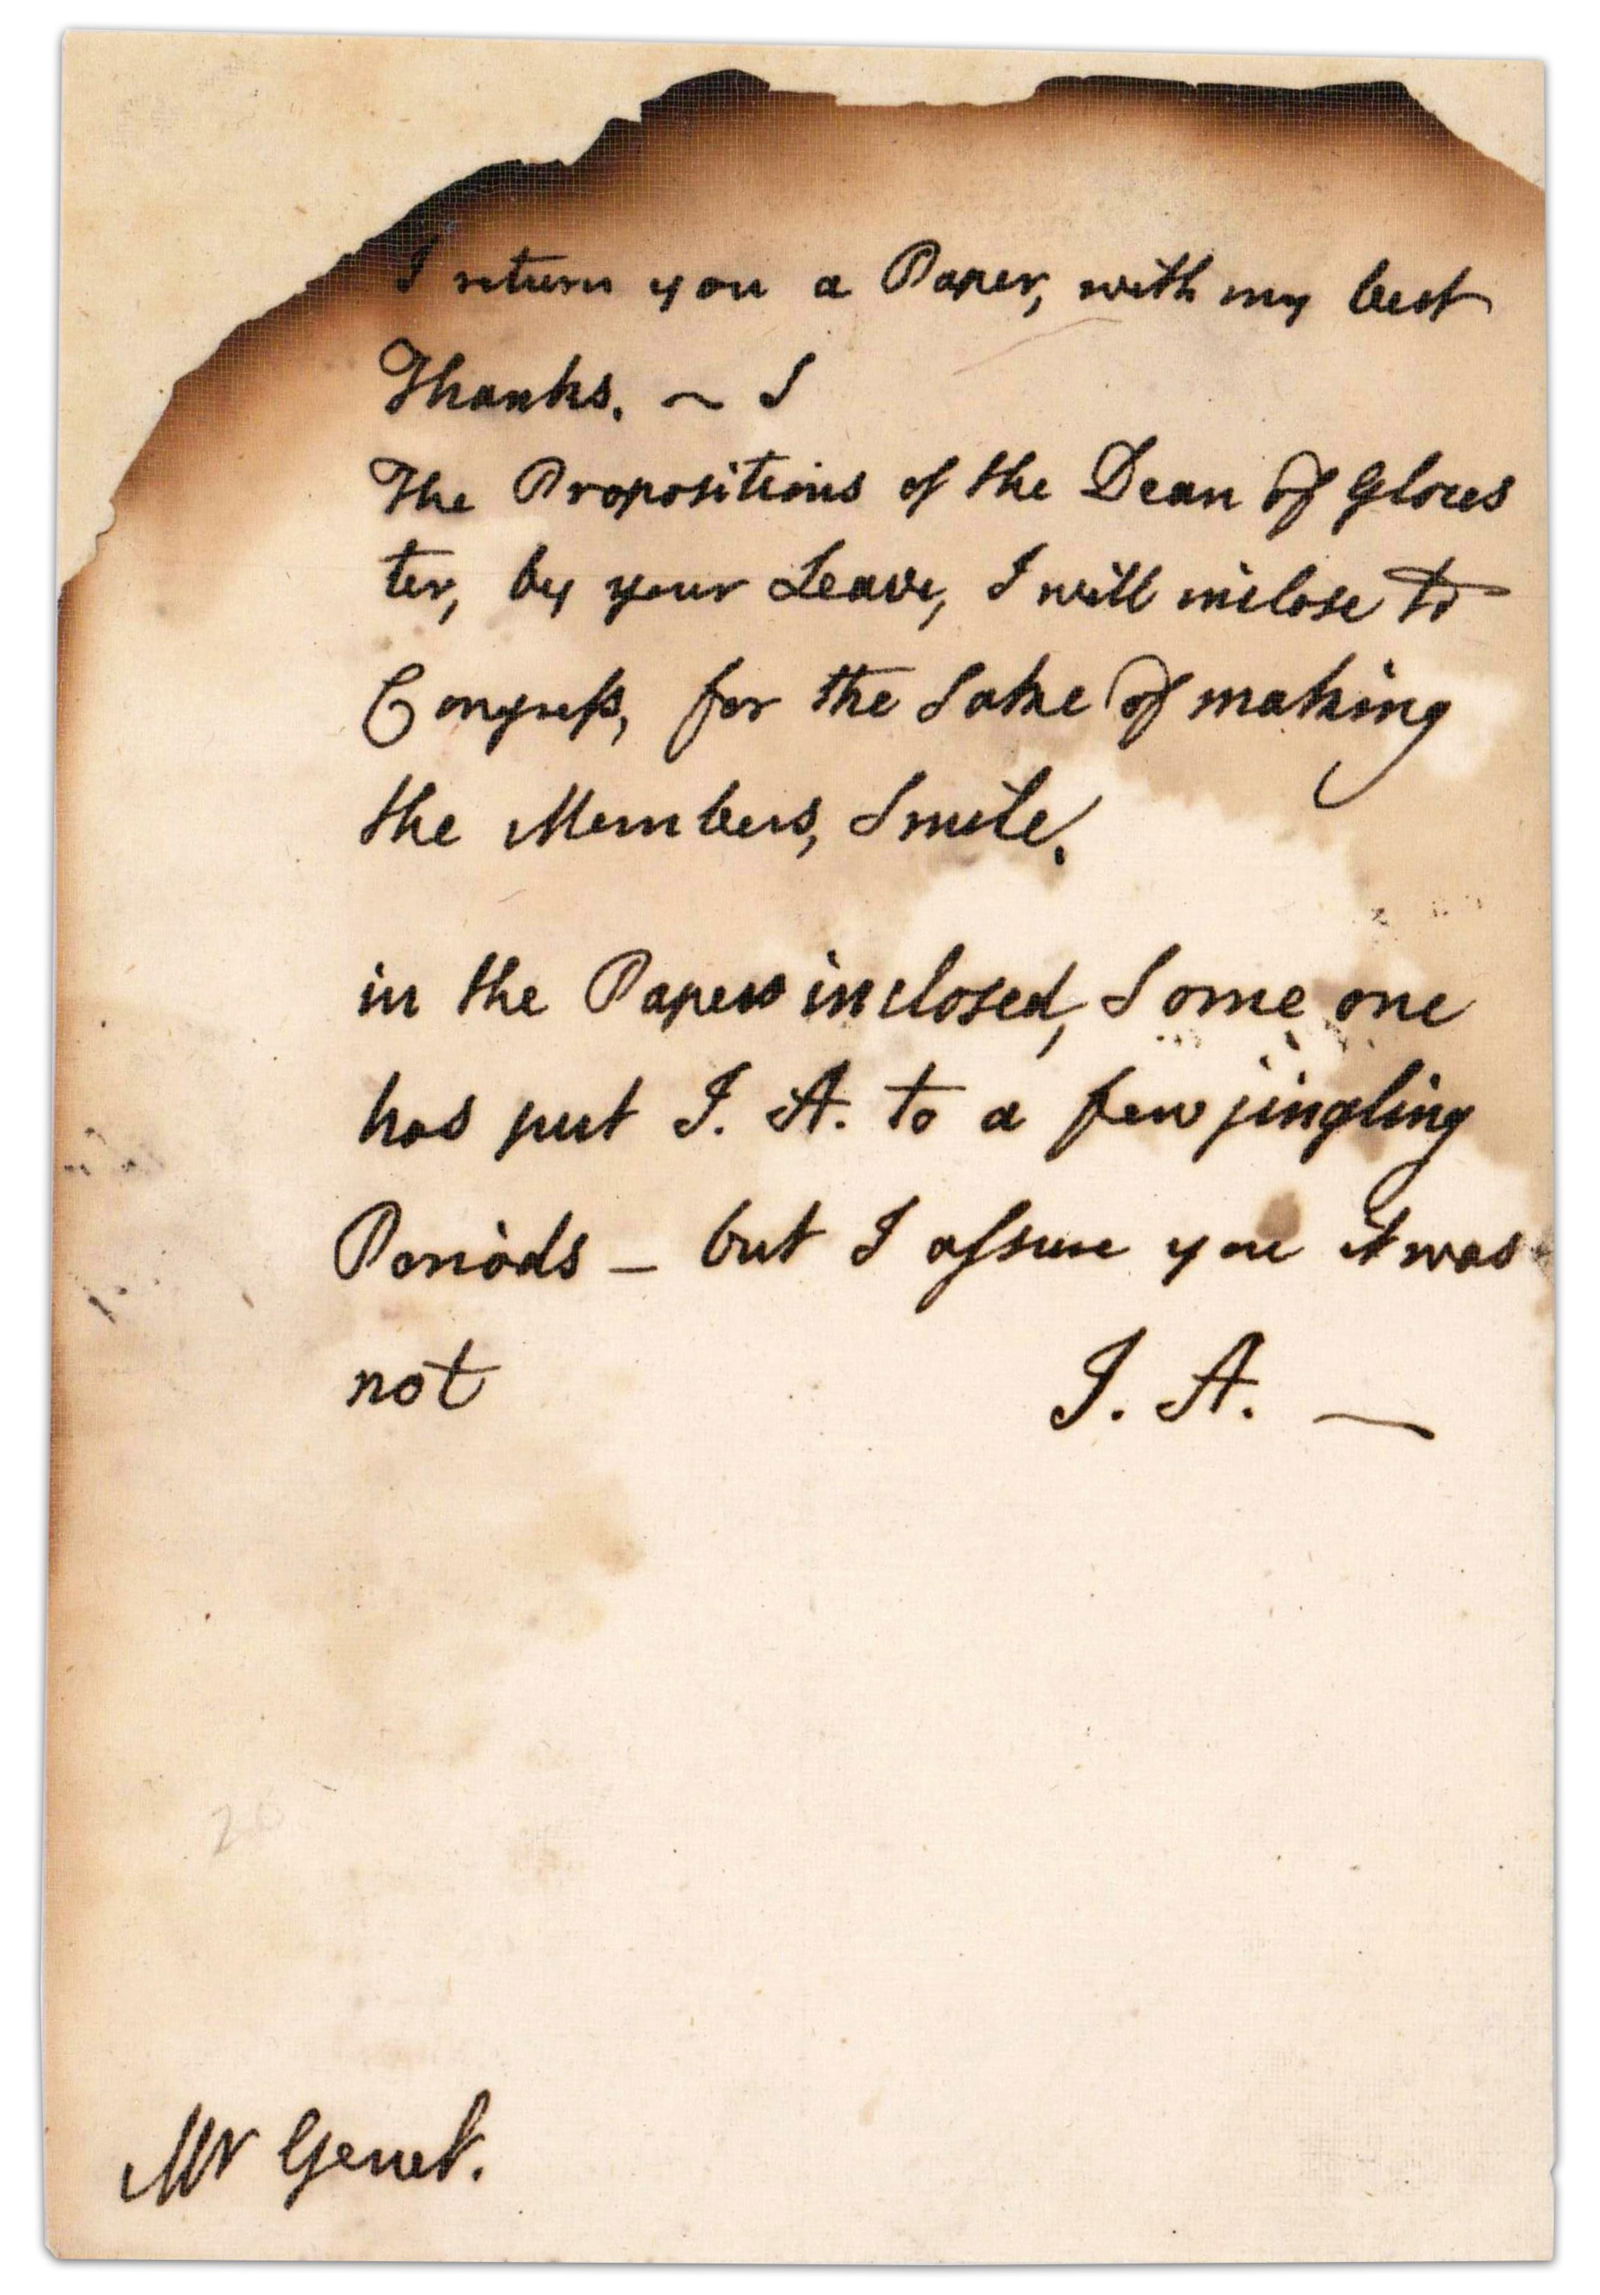 I return you a Paper, with my best
Thanks. ~ I
The Propositions of the Dean of Gloces
ter, by your Leave, I will inclose to
Congress, for the Sake of making
the Members, Smile.
in the Papers inclosed, Some one
has put J. A. to a few jingling
Periods – but I assure you it was
not J. A. —
20
Mr Genet.